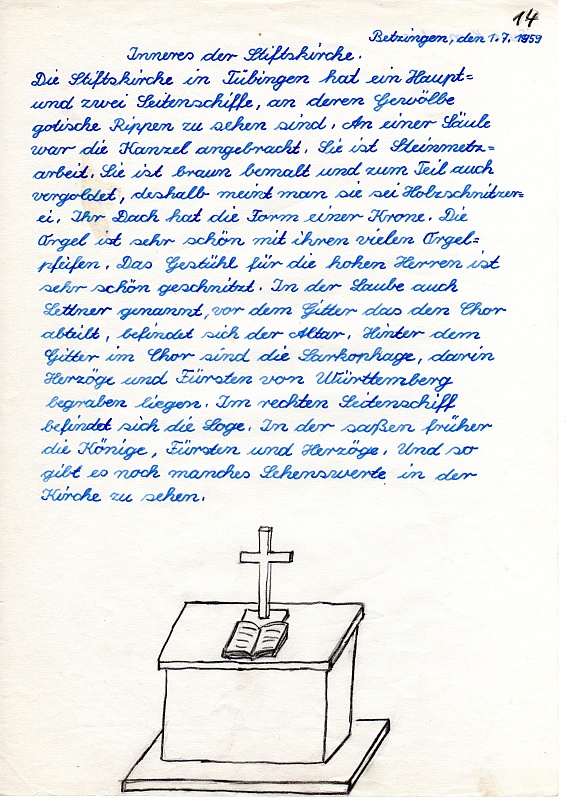 14
Betzingen, den 1.7.1959
Inneres der Stiftskirche.
Die Stiftskirche in Tübingen hat ein Haupt=
und zwei Seitenschiffe, an deren Gewölbe
gotische Rippen zu sehen sind. An einer Säule
war die Kanzel angebracht. Sie ist Steinmetz=
arbeit. Sie ist braun bemalt und zum Teil auch
vergoldet, deshalb meint man sie sei Holzschnitzer=
ei. Ihr Dach hat die Form einer Krone. Die
Orgel ist sehr schön mit ihren vielen Orgel=
pfeifen. Das Gestühl für die hohen Herren ist
sehr schön geschnitzt. In der Laube auch
Lettner genannt, vor dem Gitter das den Chor
abteilt, befindet sich der Altar. Hinter dem
Gitter im Chor sind die Sarkophage, darin
Herzöge und Fürsten von Württemberg
begraben liegen. Im rechten Seitenschiff
befindet sich die Loge. In der saßen früher
die Könige, Fürsten und Herzöge. Und so
gibt es noch manches Sehenswerte in der
Kirche zu sehen.